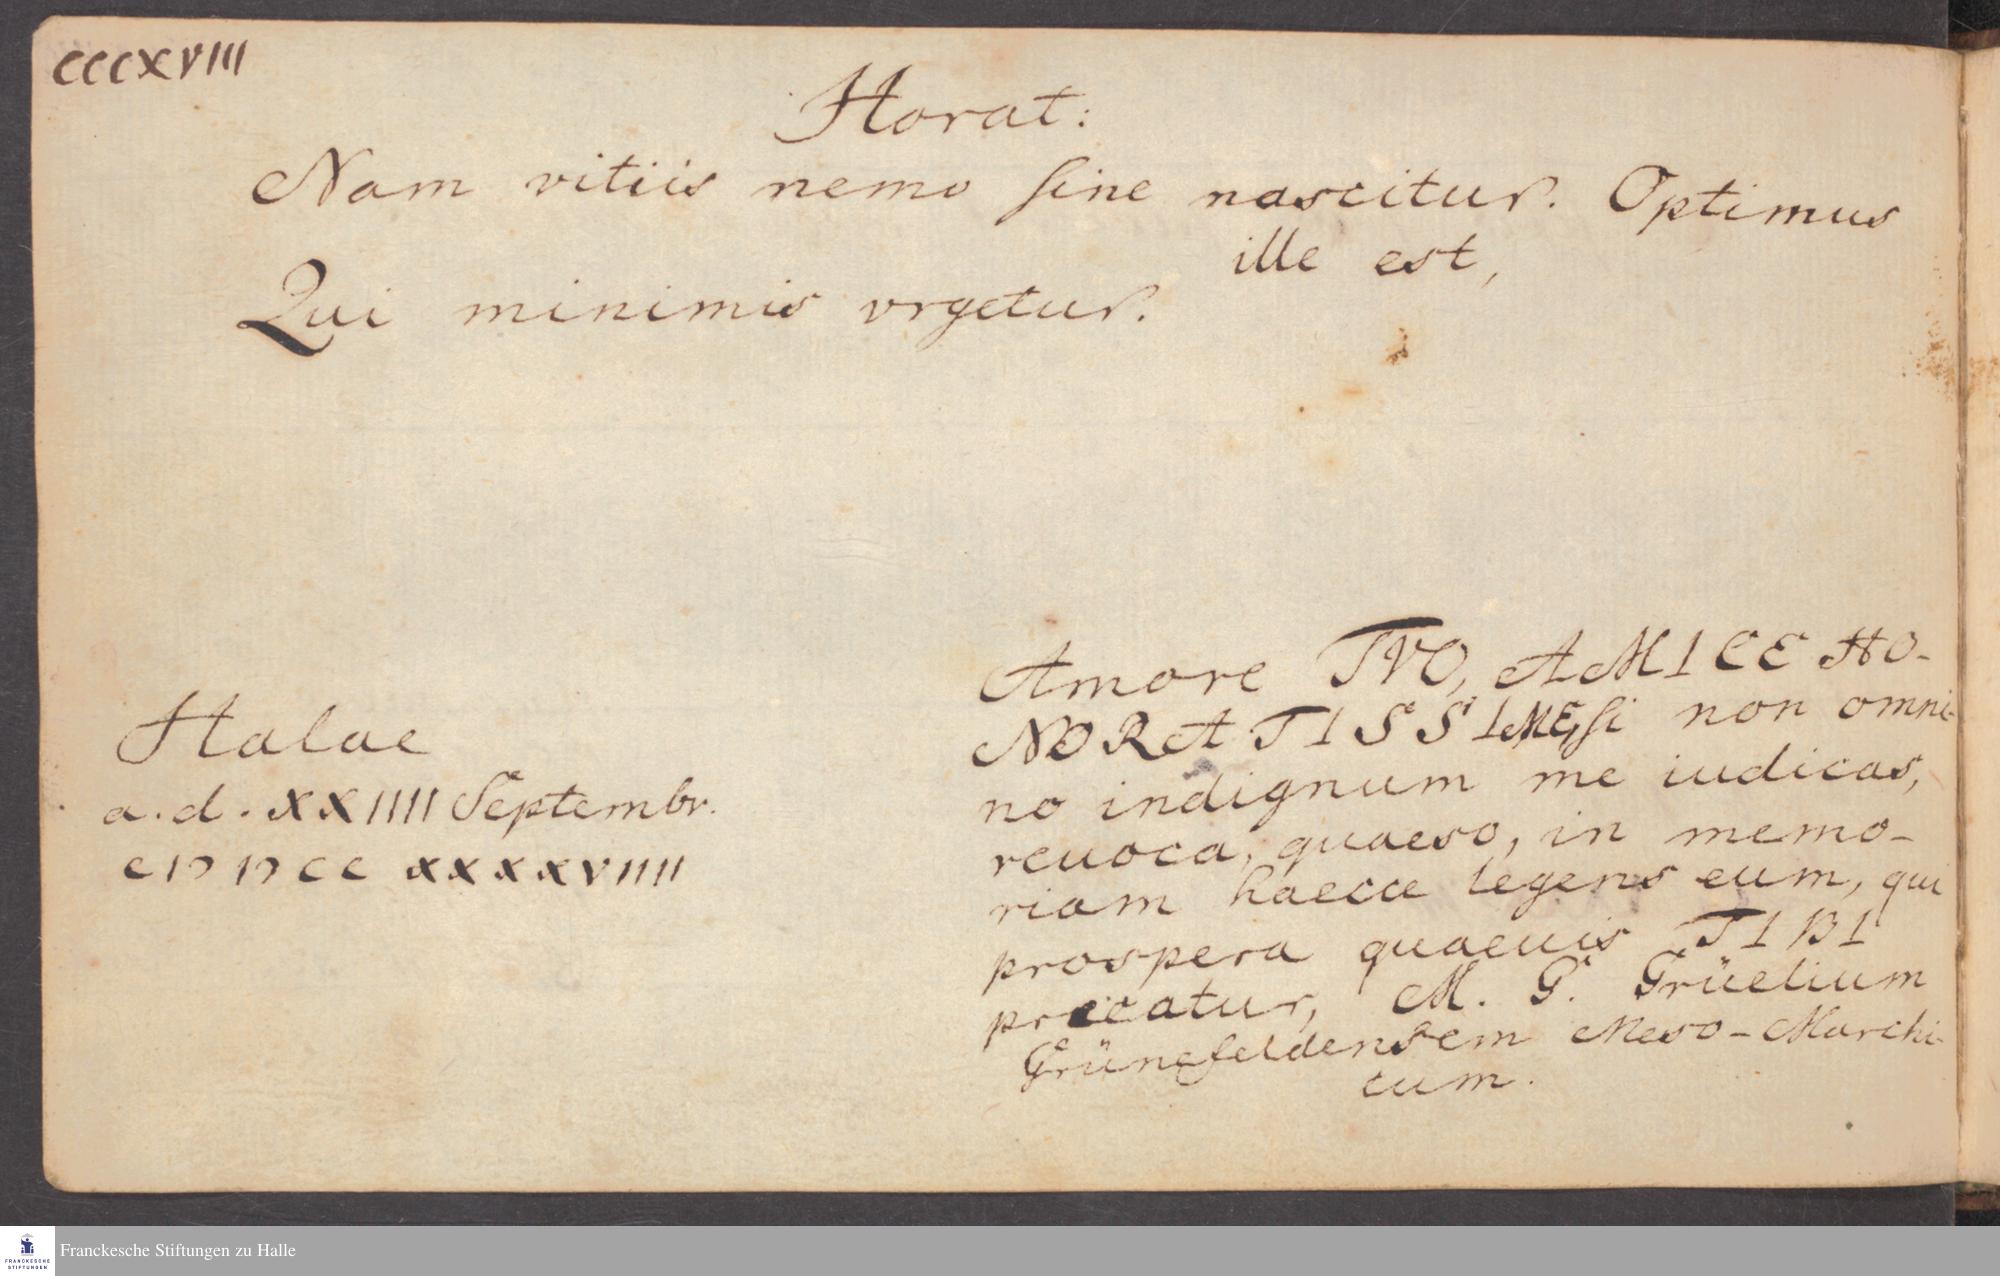 CCCXVIII
Horat:
Nam vitiis nemo sine nascitur. Optimus
ille est,
Qui minimis vrgetur.
Halae
a. d. XXIIII Septembr.
CIƆ IƆ CC XXXXVIIII
Amore TVO, AMICE HO-
NORATISSIME, si non omni-
no indignum me iudicas,
reuoca, quaeso, in memo-
riam haecce legens eum, qui
prospera quaeuis TIBI
precatur, M. G. Grüelium
Grünefeldensem Meso-Marchi-
cum.
FRANCKESCHE
STIFTUNGEN
Franckesche Stiftungen zu Halle